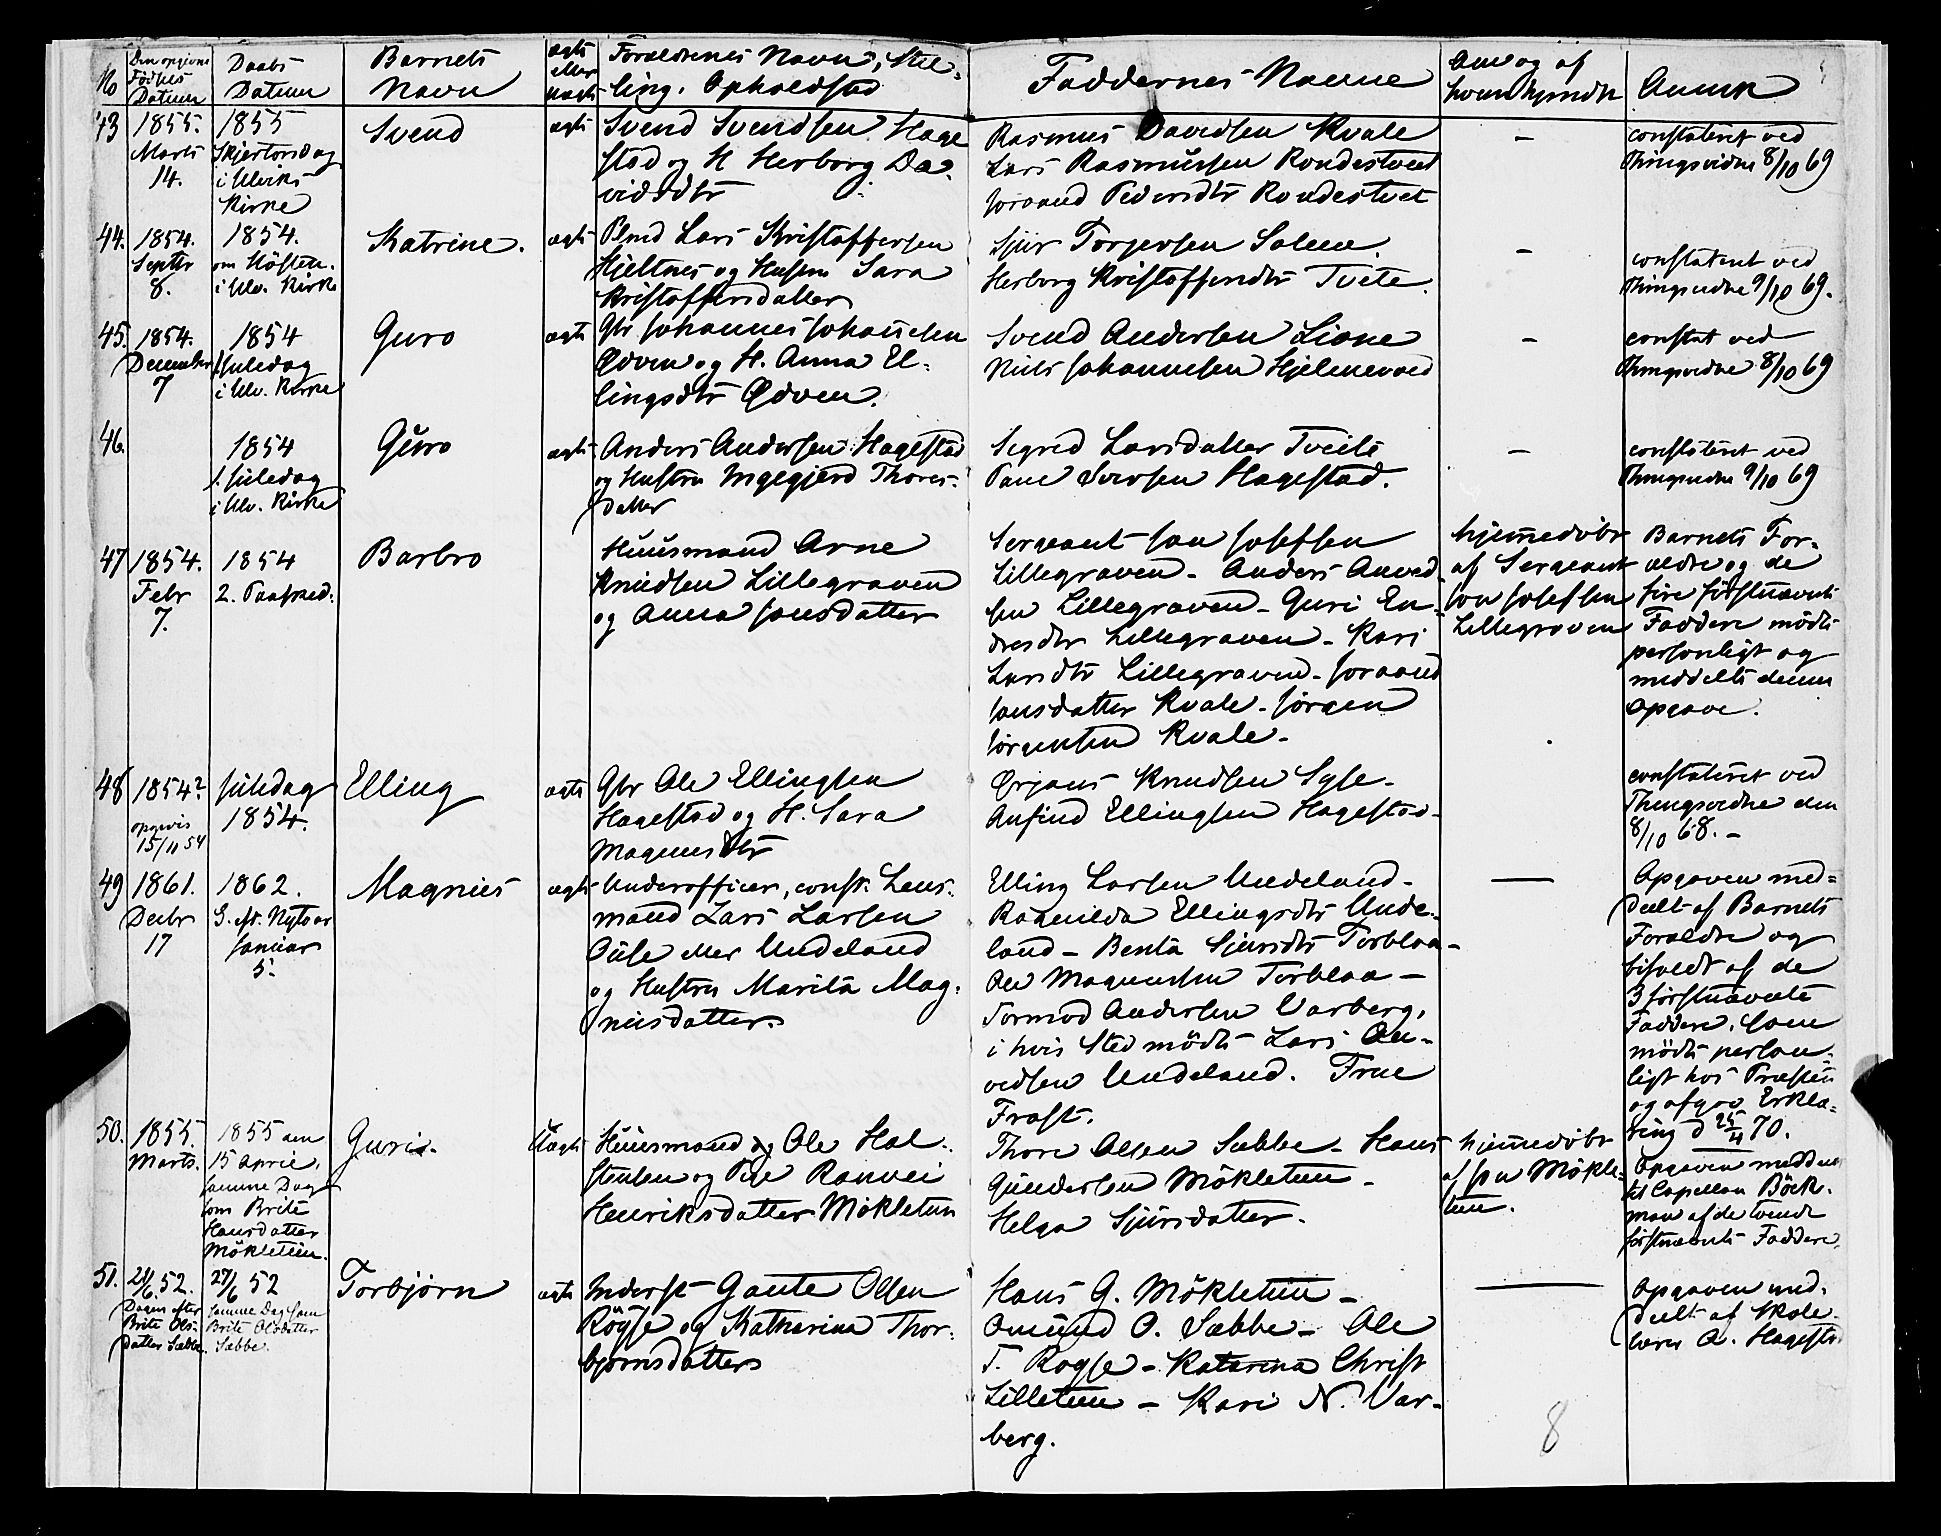 No
Den opgivne
Fødsels
Datum
Daabs
Datum
Barnets
Navn
ægte
eller
uægte
Forældrenes Navn, Stil-
ling, Opholdsted
Faddernes Navne
Om og af
hvem hjemdt
Anmk
43
1855.
Marts
14.
1855
Skjertorsdag
i Ulviks
Kirke
Svend
ægte
Svend Svendsen Hage
stad og H Herborg Da-
vidsdtr
Rasmus Davidsen Kvale
Lars Rasmussen Rondestveit
Joraand Pedersdtr Rondestvet
-
constateret ved
Thingsvidne 8/10 69
44.
1854.
Septbr
8.
1854.
om Høsten.
i Ulv. Kirke
Katrine.
ægte
Plmd Lars Kristoffersen
Hjeltnes og Hustru Sara
Kristoffersdatter
Sjur Torgersen Solem
Herborg Kristoffersdtr Tveite.
-
constateret ved
Thingsvidne 9/10 69.
45.
1854.
December
7
1854
1 Juledag
i Ulv. Kirke
Guro
ægte
Gbr Johannes Johannesen
Ødven og H. Anna El-
lingsdtr Ødven.
Svend Andersen Lione
Niels Johannesen Hjelmevoed
-
constat ved
Thingsvidne 8/10 69
46.
1854
1. Juledag
i Ulv. Kirke
Guro
ægte
Anders Andersen Hagestad
og Hustru Ingegjerd Thores-
datter
Sigred Larsdatter Tveite
Paul Iversen Hagestad.
-
constateret ved
Thingsvidne 9/10 69
47
1854.
Febr
7.
1854
2. Paasked.
Barbro
Huusmand Arne
Knudsen Lillegraven
og Anna Jonsdatter
Sergeant Jon Josefsen
Lillegraven - Anders Anved
sen Lillegraven - Guri En-
dresdtr Lillegraven - Kari
Larsdtr Lillegraven - Joraand
Jonsdatter Kvale - Jørgen
Jørgensen Kvale -
hjemmedøbt
af Sergeant
Jon Josefsen
Lillegraven
Barnets For-
ældre og de
fire førstnævnte
Faddere mødte
personligt og
meddelte denne
Opgave.
48
1854?
opgivis
15/11 54
Juledag
1854.
Elling
ægte
Gbr Ole Ellingsen
Hagestad og H. Sara
Magnusdtr
Ørjans Knudsen Syse -
Anfind Ellingsen Hagestad -
constateret ved
Thingsvidne den
8/10 68. -
49
1861.
Decbr
17
1862.
S. eft. Nytaar
Januar
5.
Magnus
ægte
Underofficer, const. Lens-
mand Lars Larsen
Ouse eller Undeland
og Hustru Marita Mag-
nusdatter.
Elling Larsen Undeland -
Ragnilda Ellingsdtr Unde-
land - Benta Sjursdtr Torbloa -
Ole Magnussen Torbloa -
Tormod Andersen Varberg,
i hvis Sted mødte Lars An-
vedsen Undeland. Frue
Frost.
—
Opgaven med-
delt af Barnets
Forældre og
bifaldt af de
3 førstnævnte
Faddere, som
mødte person-
ligt hos Præsten
og afgav Erklæ-
ring d 25/4 70.
50.
1855.
Marts.
1855 den
15 April,
samme Dag
som Brite
Hansdatter
Mökletun.
Guri.
Uægte
Huusmand og Ole Hal-
stensen og Pige Ranvei
Henriksdatter Mökletun
Thore Olsen Sæbbe - Hans
Gundersen Mökletun -
Helga Sjursdatter.
hjemmedøbt
af Jon Mökle-
tun.
Opgaven meddelt
til Capellan Böck-
man af de tvende
førstnævnte Faddere.
51.
21/6 52.
Dagen efter
Brite Ols-
datter Sæbbe.
27/6 52
samme Dag som
Brite Olsdatter
Sæbbe.
Torbjørn
ægte
Inderst Gaute Olsen
Röyse og Katharina Thor-
bjørnsdatter
Hans G. Mökletun -
Omund O. Sæbbe - Ole
T. Røyse - Katarina Christ
Lilletun - Kari N. Var-
berg.
—
Opgaven med-
delt af Skole-
lærer O. Hagestad
8